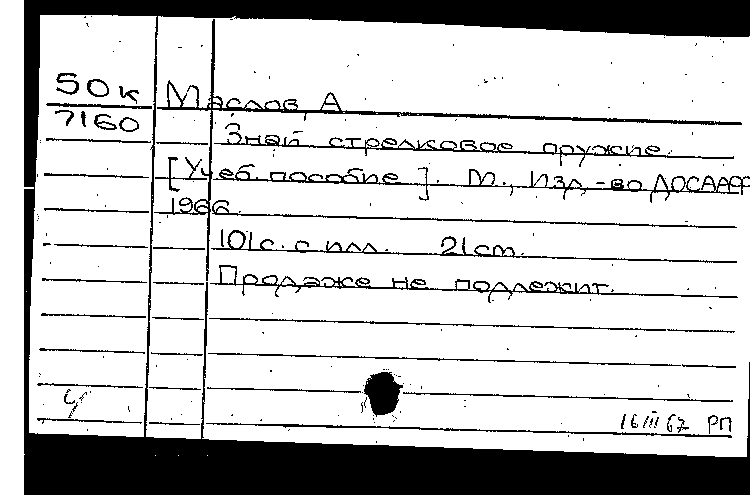 50к Маслов, А
7160
Знай стрелковое оружие.
[Учеб. пособие]. М., Изд-во ДОСААФ
1966.
101с. с илл. 21см.
Продаже не подлежит.
16 III 67 РП